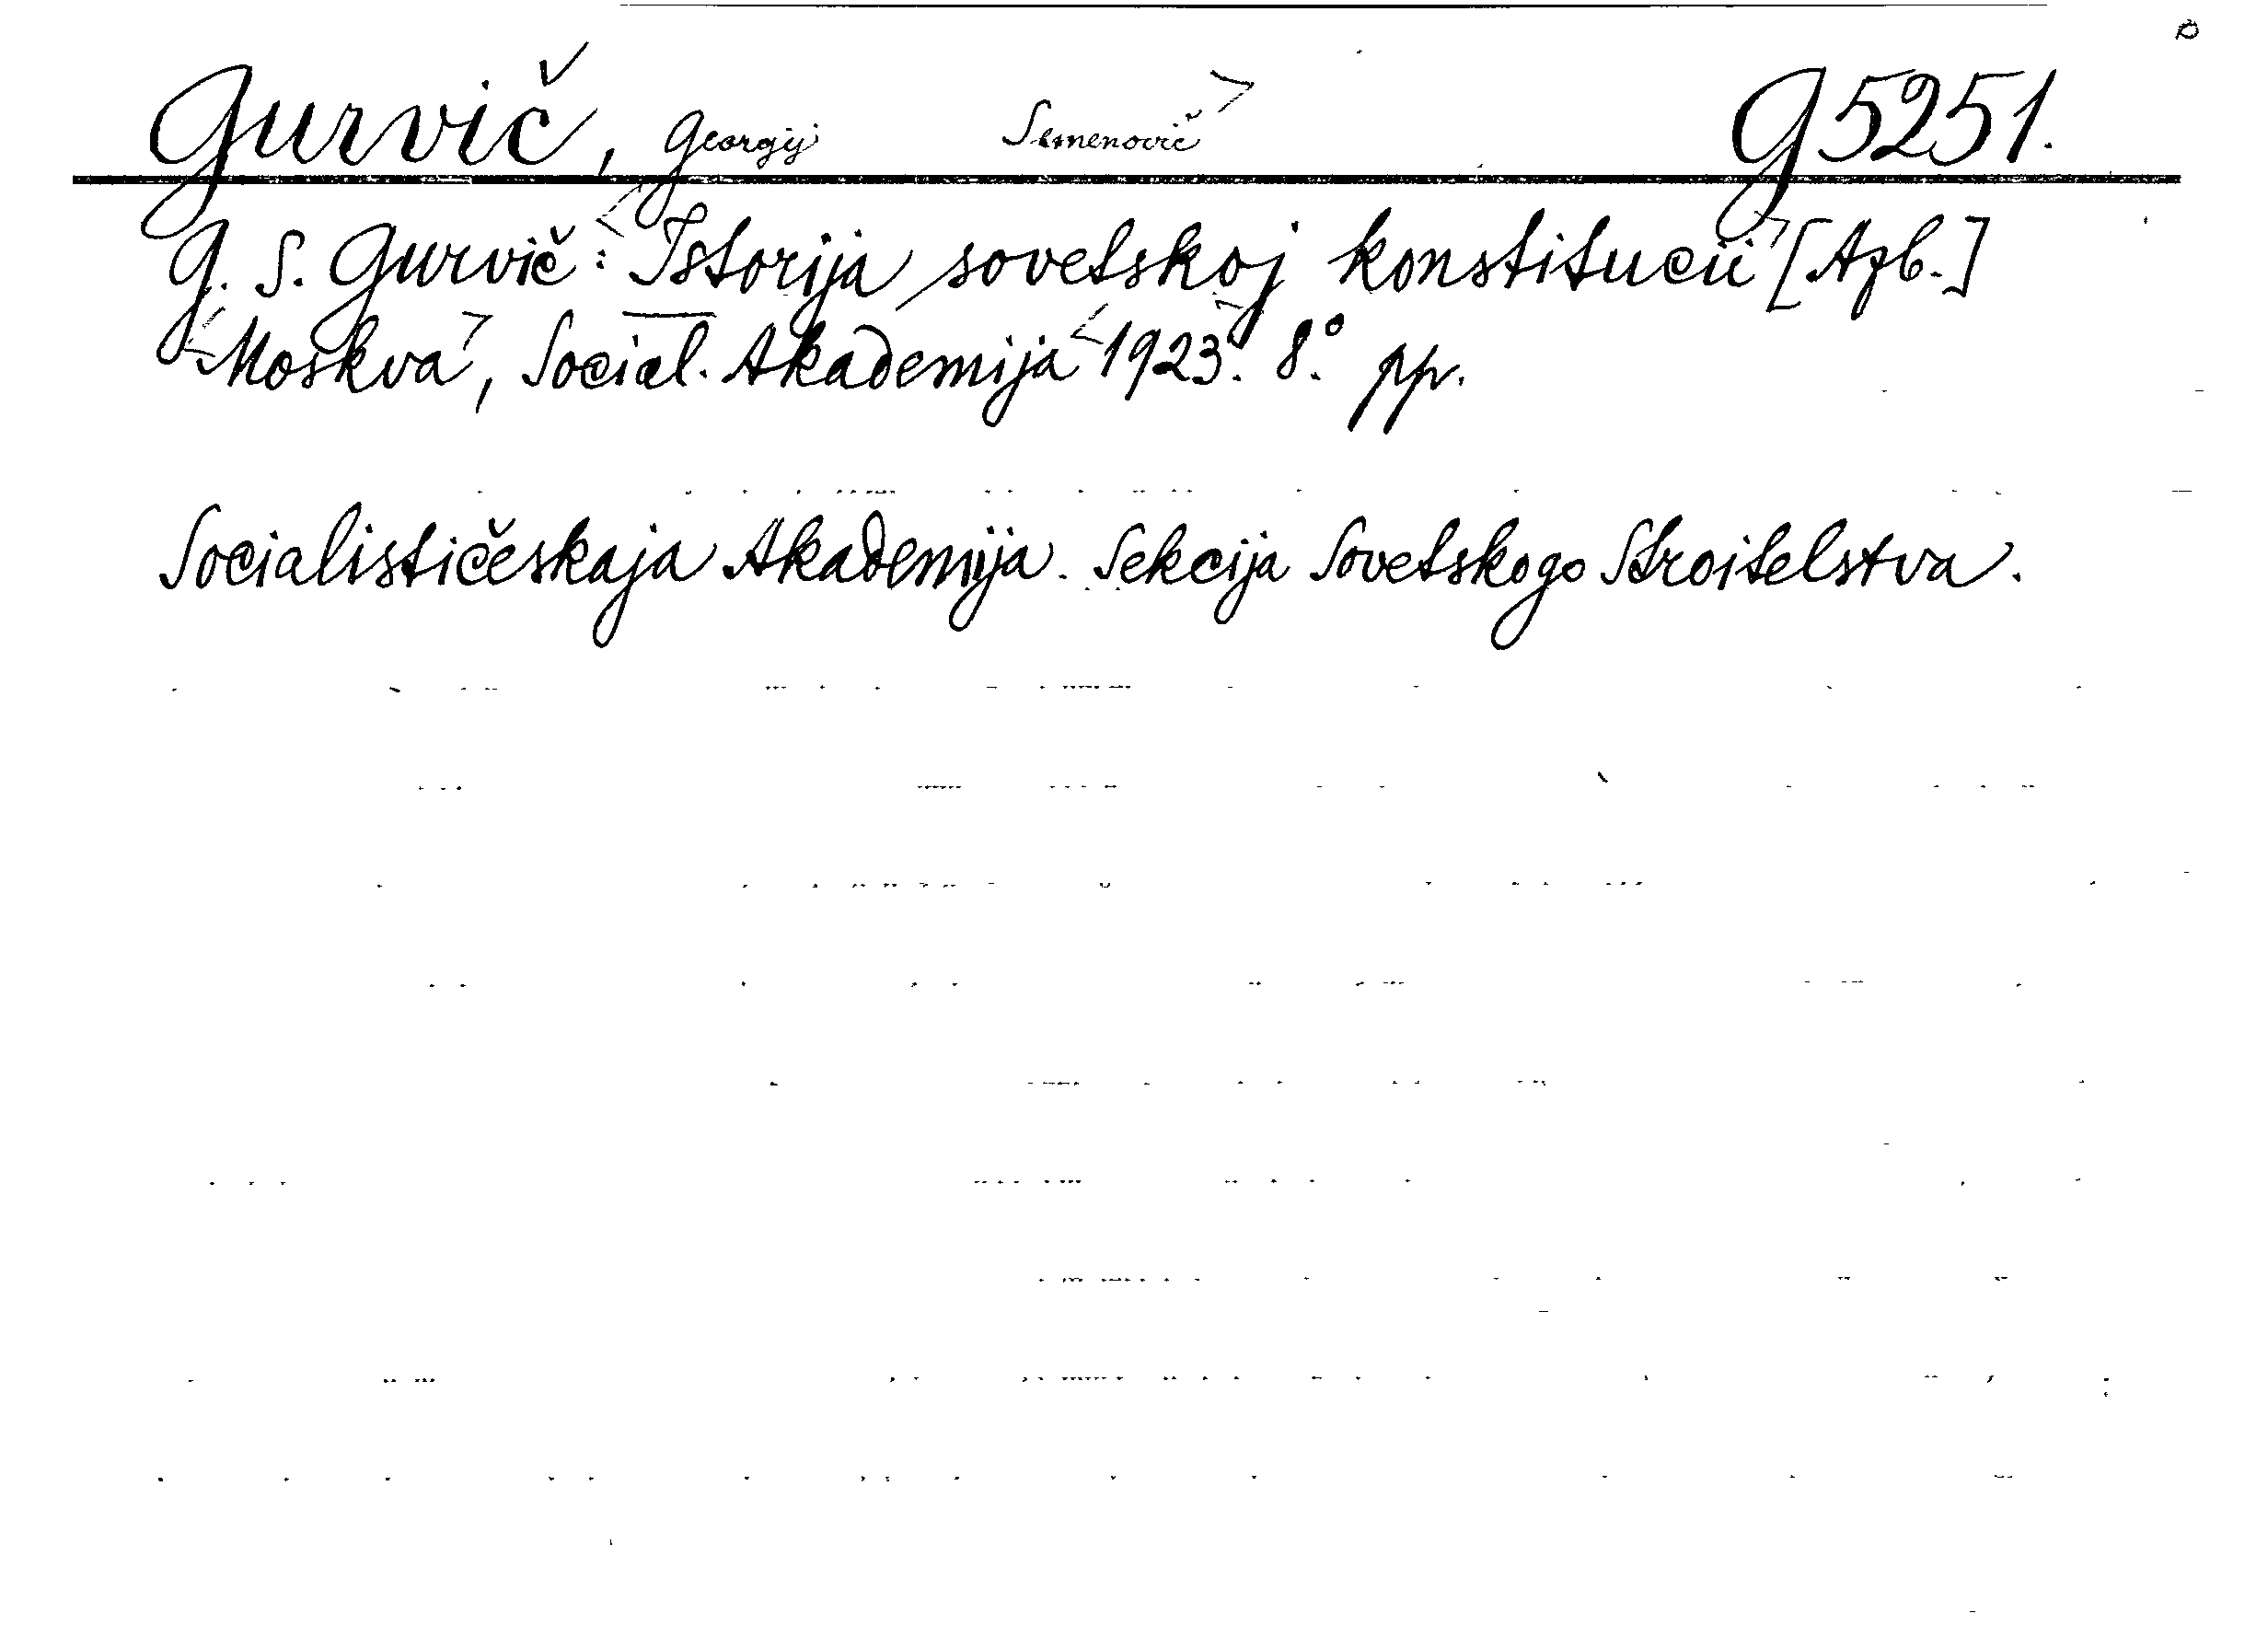 Gurvič, Georgij Semenovič> G5251.
G. S. Gurvič: <Istorija sovetskoj konstitucii> [Azb.]
<Moskva>, Social. Akademija <1923>. 8.° pp.
Socialističeskaja Akademija. Sekcija Sovetskogo Stroitelstva.